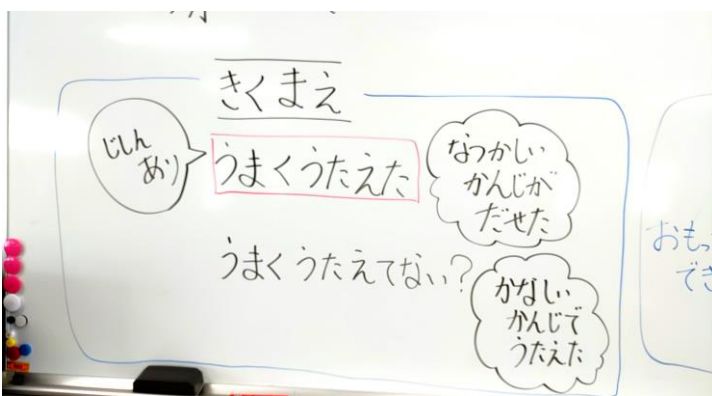 きくまえ
じしん
あり
うまくうたえた
なつかしい
かんじが
だせた
うまくうたえてない?
かなしい
かんじで
うたえた
おもっ
でき